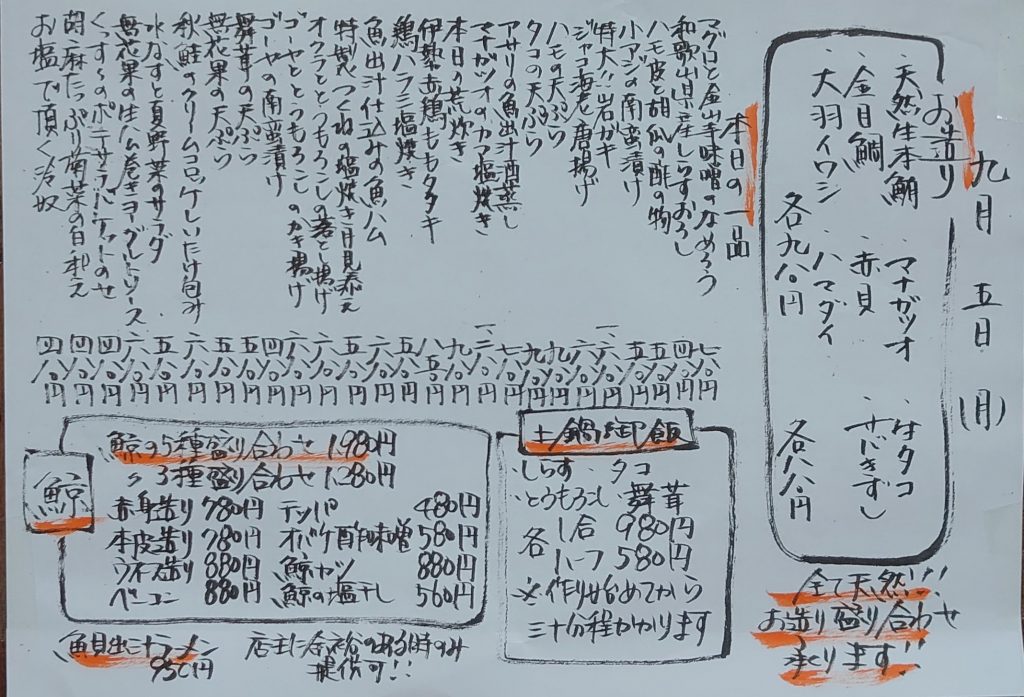 九月五日(月)
お造り
・天然生本鮪 ・マナガツオ ・生タコ
・金目鯛 ・赤貝 ・サバきずし
・大羽イワシ ・ハマダイ
各九八〇円 各八八〇円
全て天然!!
お造り盛り合わせ
承ります!!
本日の一品
マグロと金山寺味噌のなめろう 七八〇円
和歌山県産しらすおろし 四八〇円
ハモ皮と胡瓜の酢の物 五八〇円
小アジの南蛮漬け 五八〇円
特大!!岩ガキ 一、六八〇円
ジャコ海老唐揚げ 六八〇円
ハモの天ぷら 九八〇円
タコの天ぷら 九八〇円
アサリの魚出汁酒蒸し 七八〇円
マナガツオのカマ塩焼き 一、二八〇円
本日の荒炊き 九八〇円
伊勢赤鶏ももタタキ 八五〇円
鶏ハラミ塩焼き 五八〇円
魚出汁仕込みの魚ハム 六八〇円
特製つくねの塩焼き月見添え 五八〇円
オクラととうもろこしの落とし揚げ 六八〇円
ゴーヤととうもろこしのかき揚げ 六八〇円
ゴーヤの南蛮漬け 四八〇円
舞茸の天ぷら 五八〇円
無花果の天ぷら 五八〇円
秋鮭のクリームコロッケしいたけ包み 六八〇円
水なすと夏野菜のサラダ 五八〇円
無花果の生ハム巻きヨーグルトソース 六八〇円
くっすーのポテサラバケットのせ 四八〇円
胡麻たっぷり菊菜の白和え 四八〇円
お塩で頂く冷奴 四八〇円
土鍋御飯
・しらす ・タコ
・とうもろこし ・舞茸
各 1合 980円
ハーフ 580円
※作り始めてから
三十分程かかります
鯨
鯨の5種盛り合わせ 1,980円
〃 3種盛り合わせ 1,280円
赤身造り 780円 テッパ 480円
本皮造り 780円 オバケ酢味噌 580円
ウネス造り 880円 鯨カツ 880円
ベーコン 880円 鯨の塩干し 560円
魚貝出汁ラーメン
950円
店主に余裕の有る時のみ
提供可!!